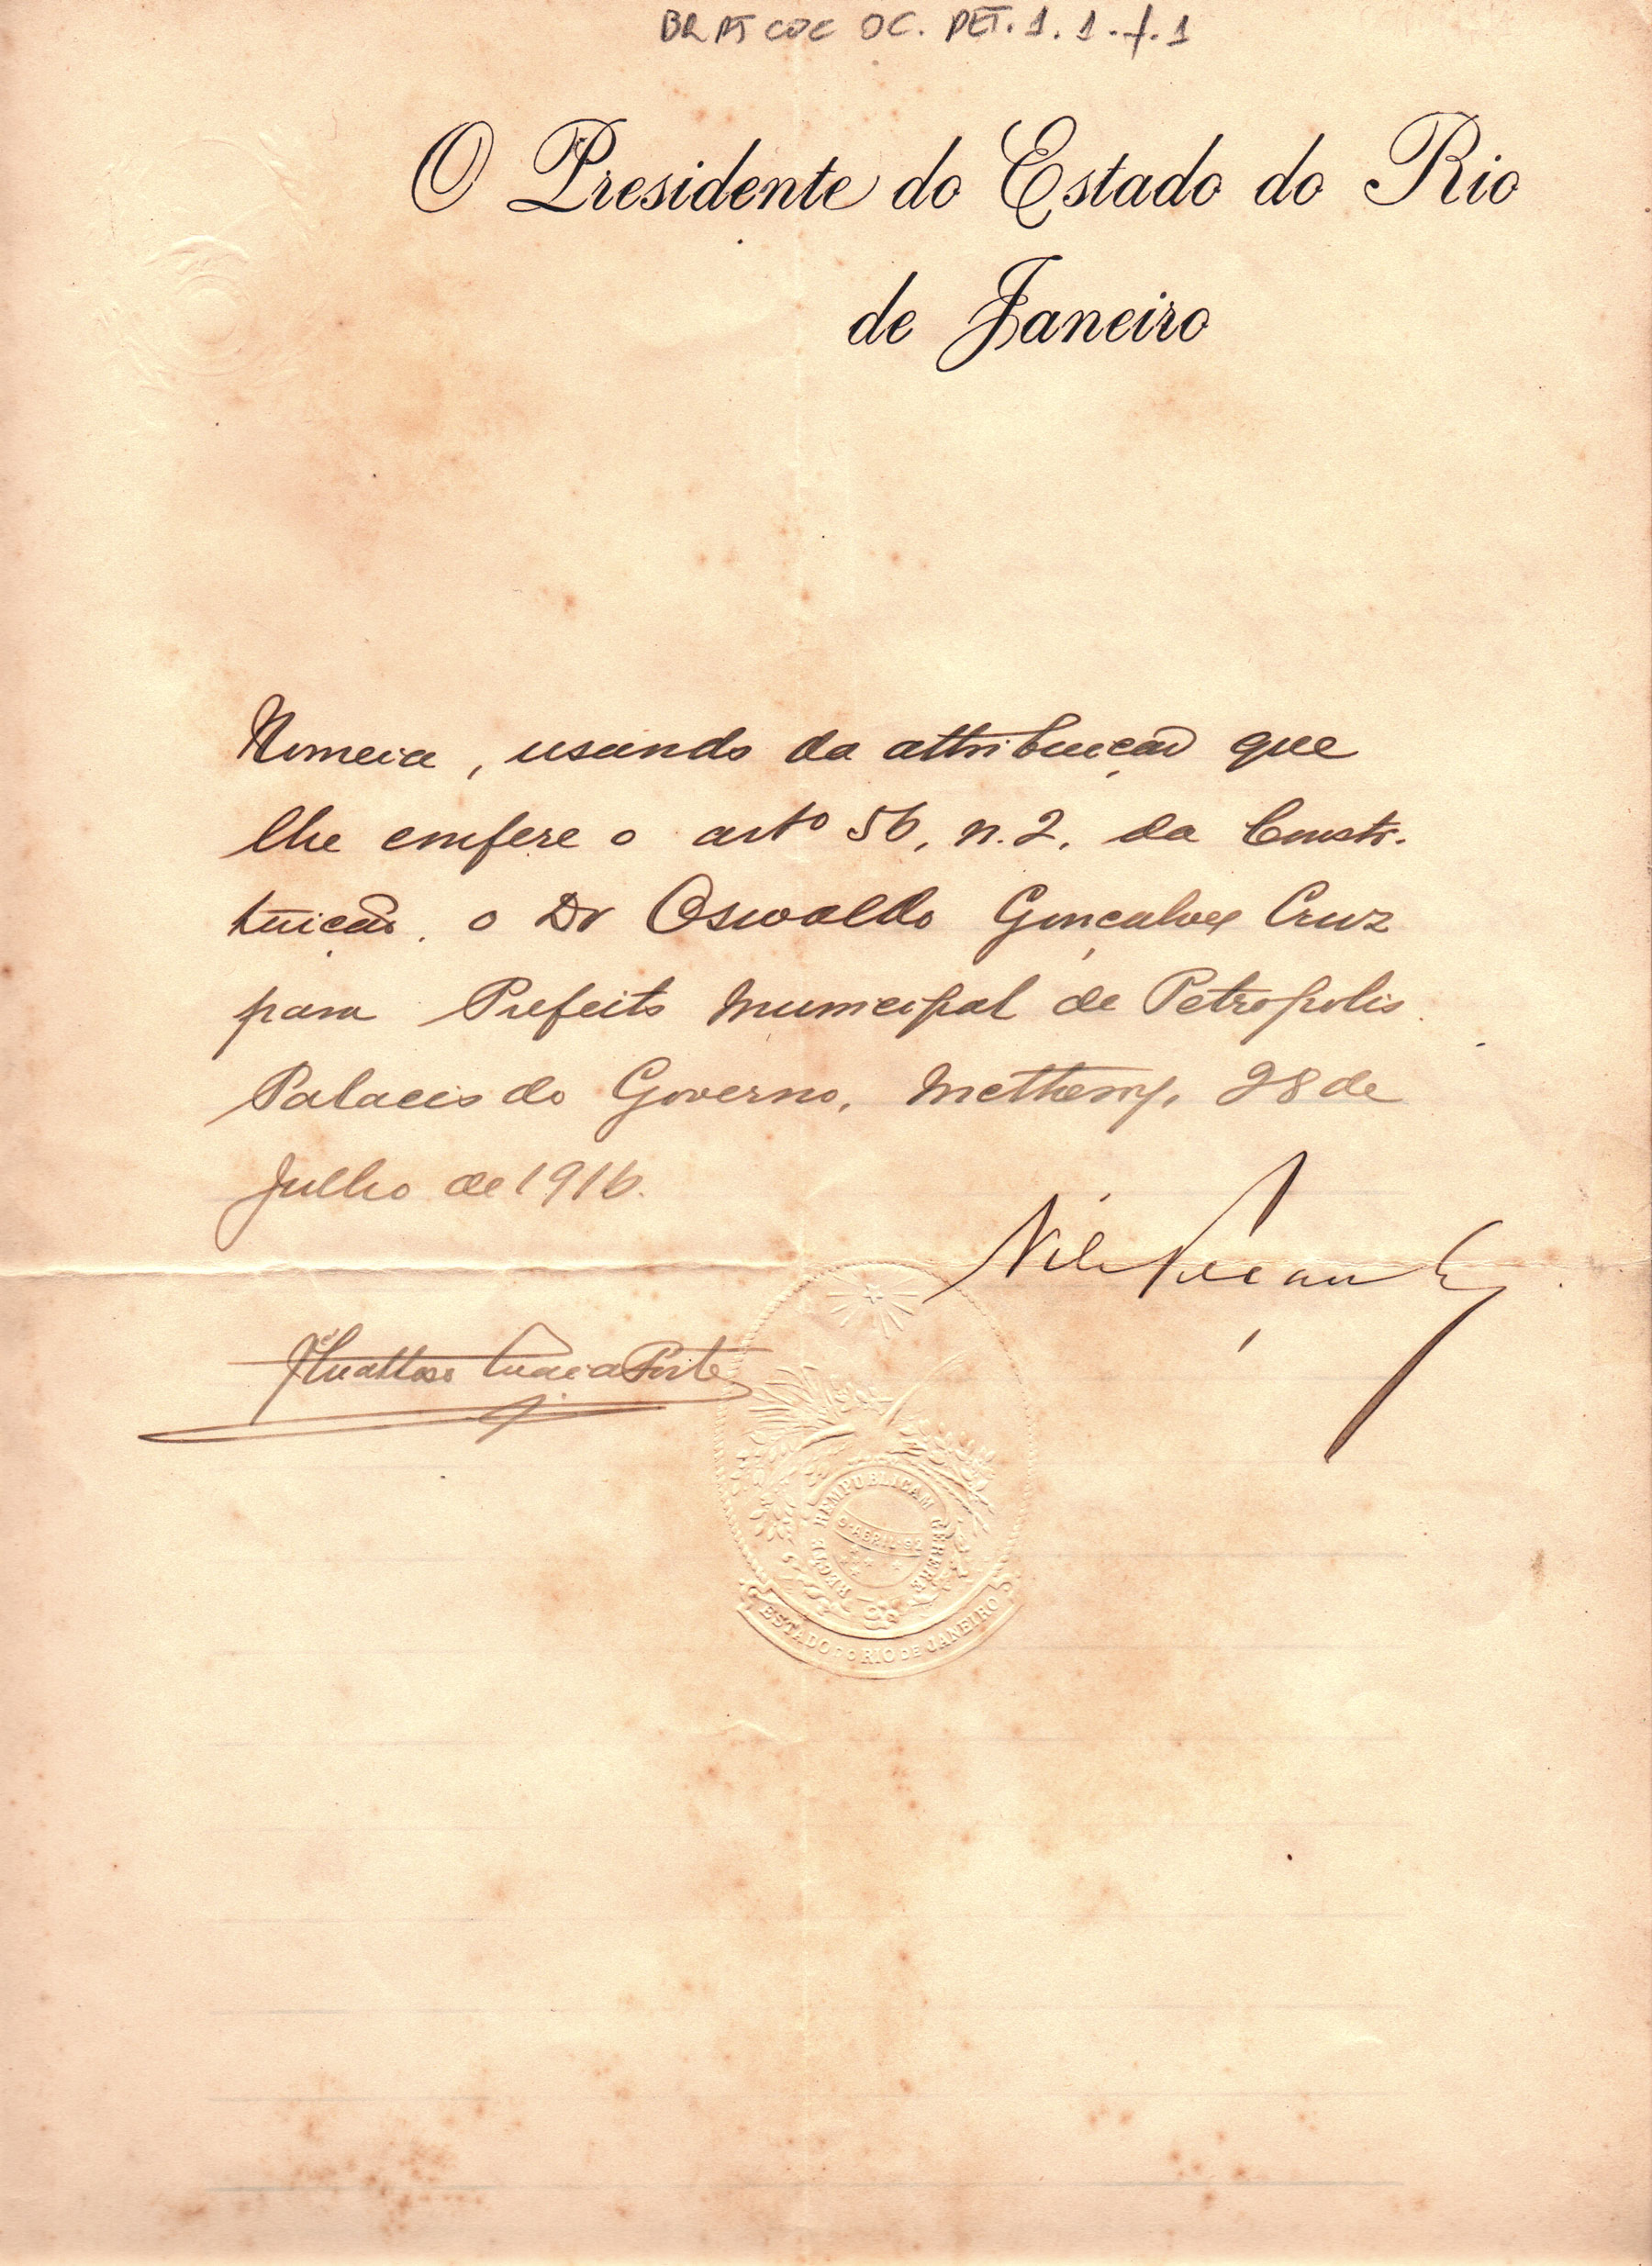 BR RJ COC OC. PET. 1. 1. f. 1
O Presidente do Estado do Rio
de Janeiro
Nomeia, usando da attribuição que
lhe confere o artº 56, n. 2, da Consti-
tuição, o Dr Oswaldo Gonçalves Cruz
para Prefeito Municipal de Petropolis.
Palacio do Governo, Nictheroy, 28 de
Julho de 1916.
Nilo Peçanha
Mattoso Maia Forte
RECTE REMPUBLICAM GERERE
9·ABRIL·92
ESTADO DO RIO DE JANEIRO